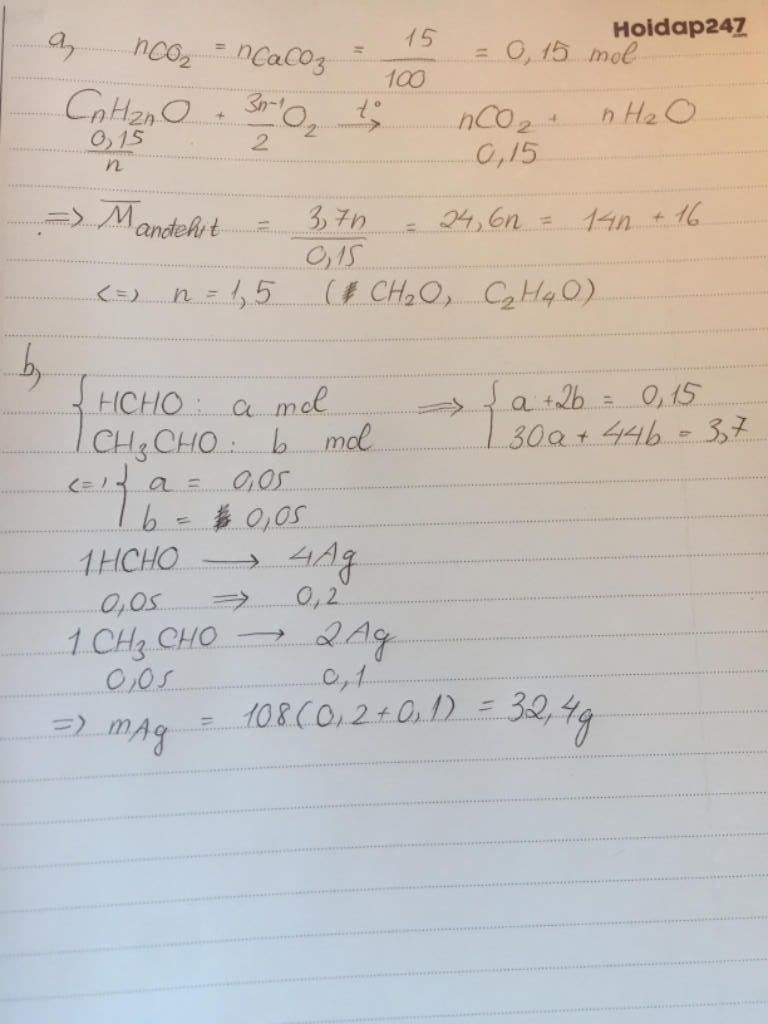 Hoidap247
a, nCO2 = nCaCO3 = 15/100 = 0,15 mol
CnH2nO + 3n-1/2 O2 t°→ nCO2 + nH2O
0,15/n 0,15
=> M̅andehit = 3,7n/0,15 = 24,6n = 14n + 16
<=> n = 1,5 (CH2O, C2H4O)
b,
{ HCHO : a mol => { a + 2b = 0,15
CH3CHO : b mol 30a + 44b = 3,7
<=> { a = 0,05
b = 0,05
1HCHO → 4Ag
0,05 => 0,2
1CH3CHO → 2Ag
0,05 0,1
=> mAg = 108(0,2+0,1) = 32,4g